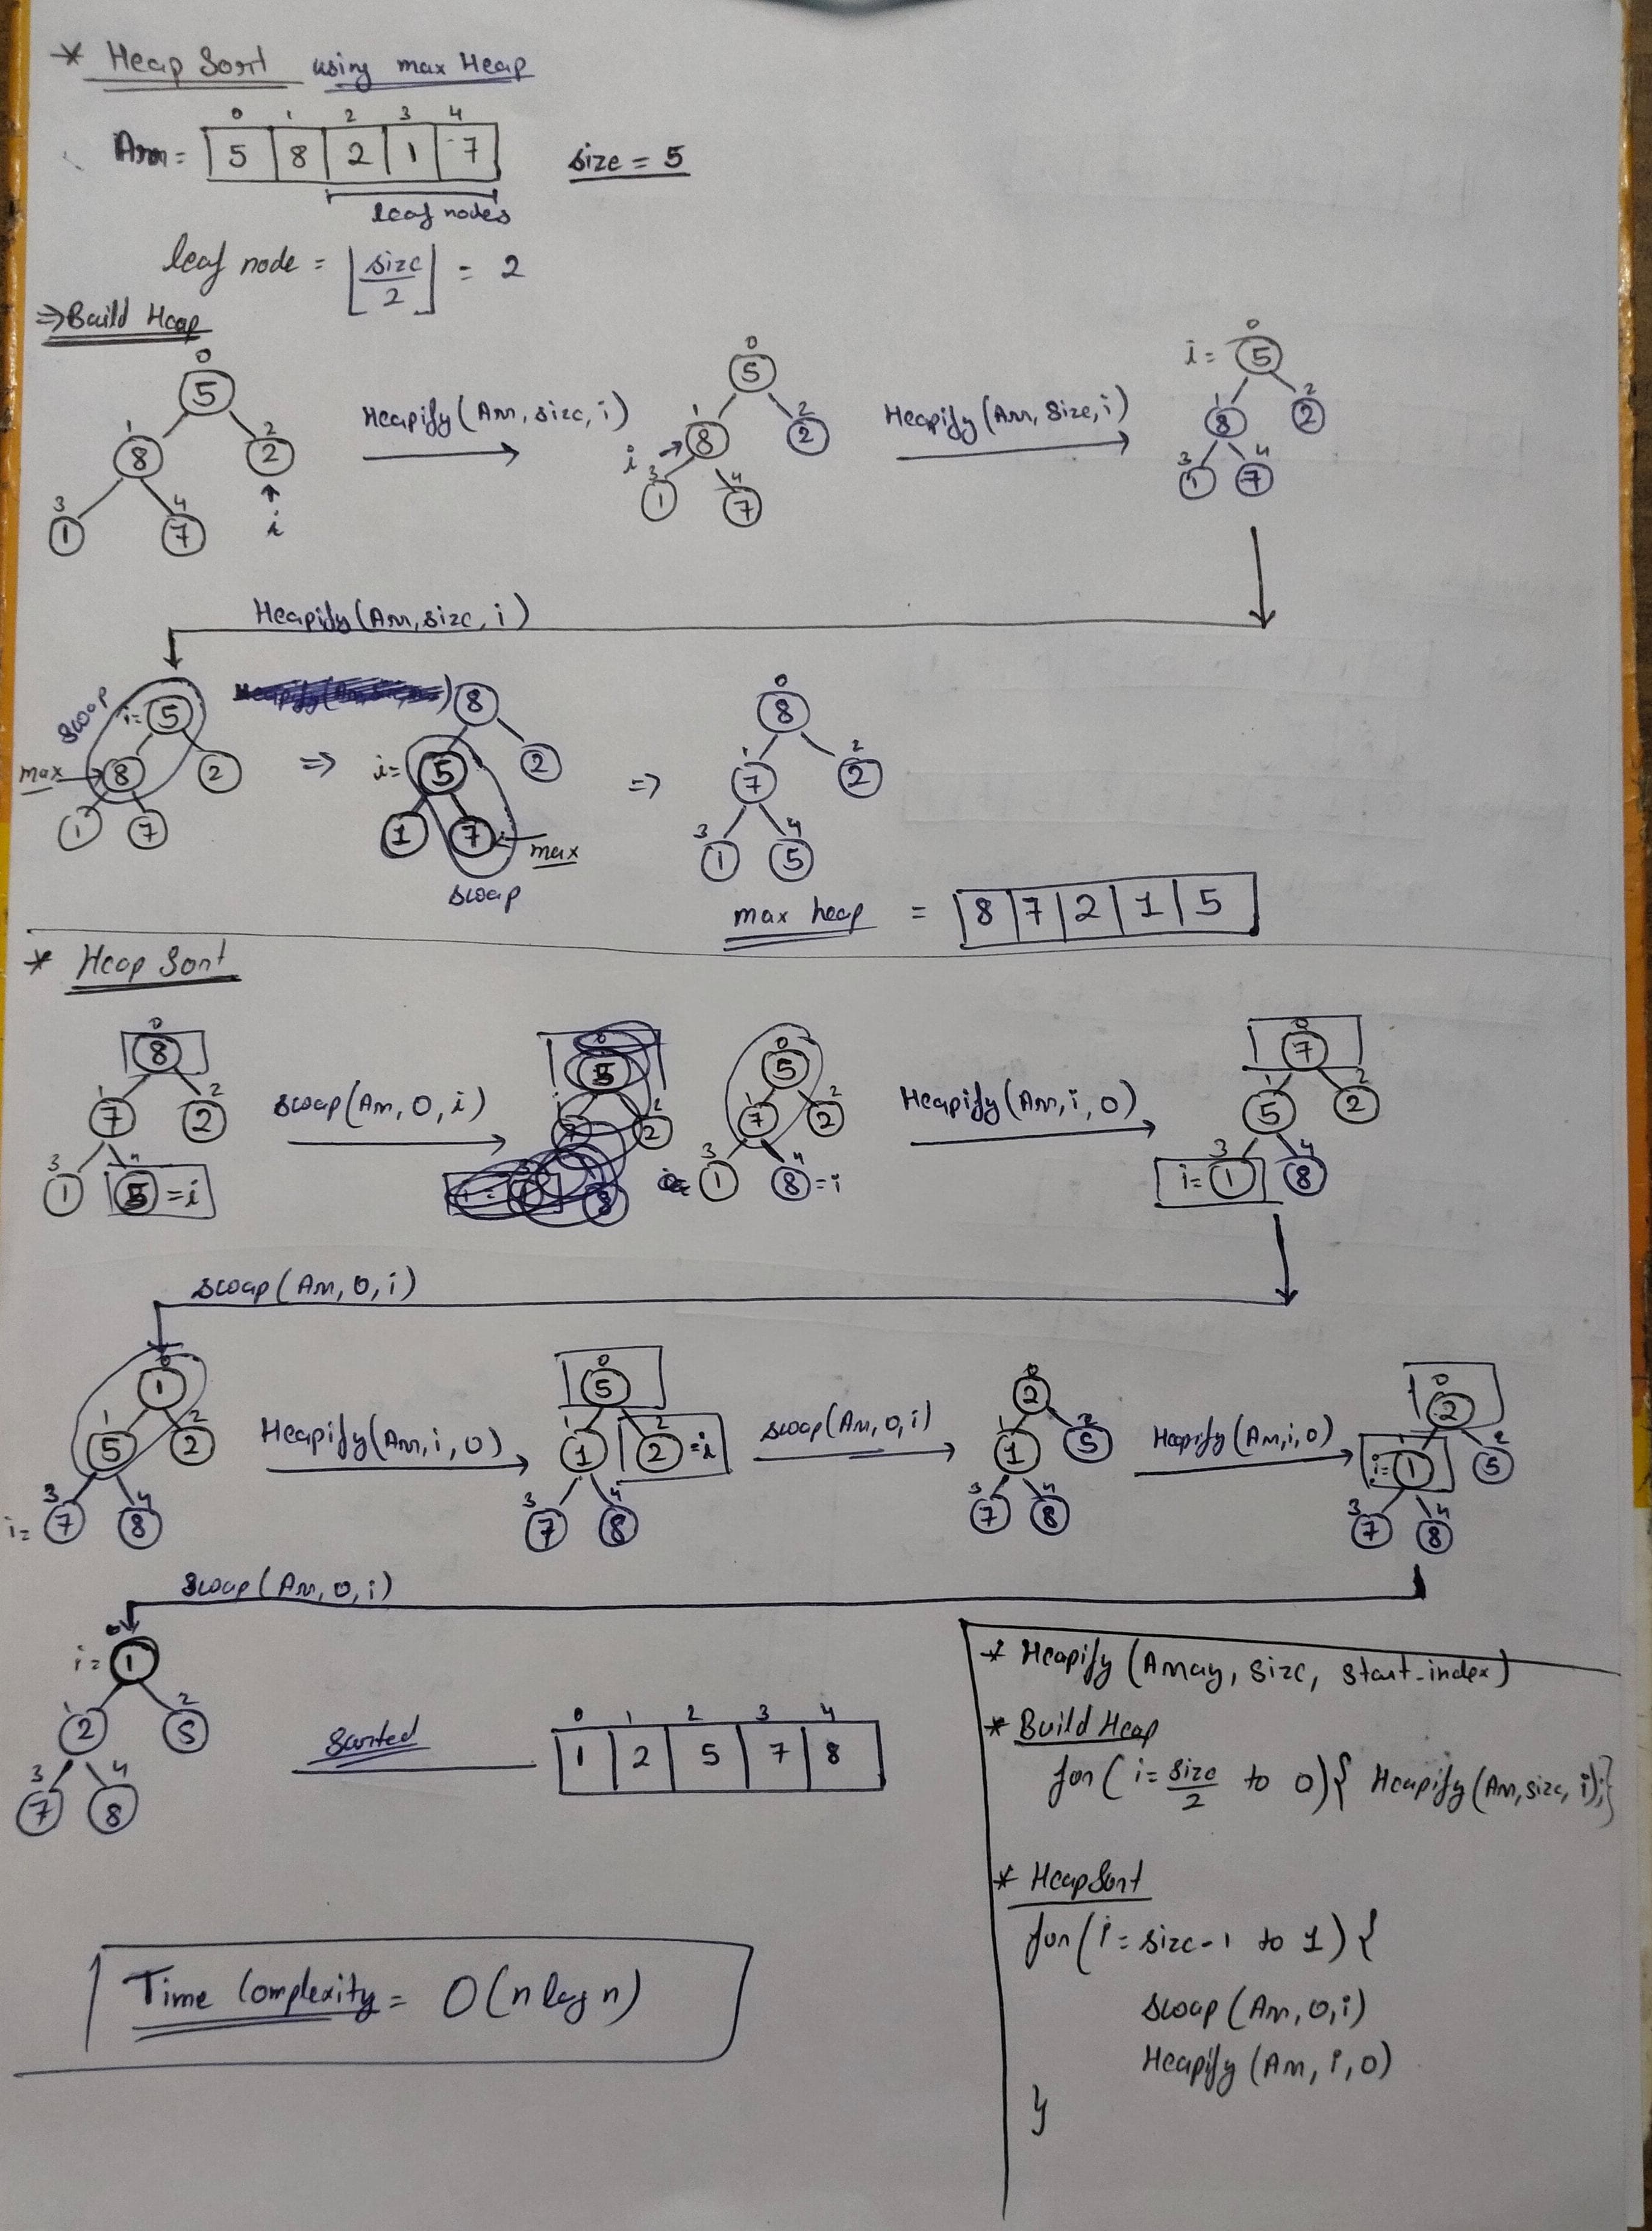 * Heap Sort using max Heap
0 1 2 3 4
Arr = 5 8 2 1 7 size = 5
leaf nodes
leaf node = ⌊size/2⌋ = 2
⇒ Build Heap
0 5 1 8 2 2 3 1 4 7 i
Heapify(Arr, size, i)
0 5 i → 1 8 2 2 3 1 4 7
Heapify(Arr, size, i)
i = 0 5 1 8 2 2 3 1 4 7
Heapify(Arr, size, i)
swap i= 5 max → 8 2 1 7
⇒ 8 i= 5 2 1 7 ← max swap
⇒ 0 8 1 7 2 2 3 1 4 5
max heap = 8 7 2 1 5
* Heap Sort
0 8 1 7 2 2 3 1 4 5 = i
swap(Arr, 0, i)
0 5 1 7 2 2 3 1 4 8 = i
Heapify(Arr, i, 0)
0 7 1 5 2 2 3 i = 1 4 8
swap(Arr, 0, i)
0 1 1 5 2 2 i = 3 7 4 8
Heapify(Arr, i, 0)
0 5 1 1 2 2 = i 3 7 4 8
swap(Arr, 0, i)
0 2 1 1 2 5 3 7 4 8
Heapify(Arr, i, 0)
0 2 i = 1 1 2 5 3 7 4 8
swap(Arr, 0, i)
i = 0 1 1 2 2 5 3 7 4 8
Sorted
0 1 2 3 4
1 2 5 7 8
* Heapify (Array, size, start-index)
* Build Heap
for( i = size/2 to 0){ Heapify(Arr, size, i);}
* HeapSort
for(i = size-1 to 1) {
swap (Arr, 0, i)
Heapify (Arr, i, 0)
}
Time Complexity = O(n log n)